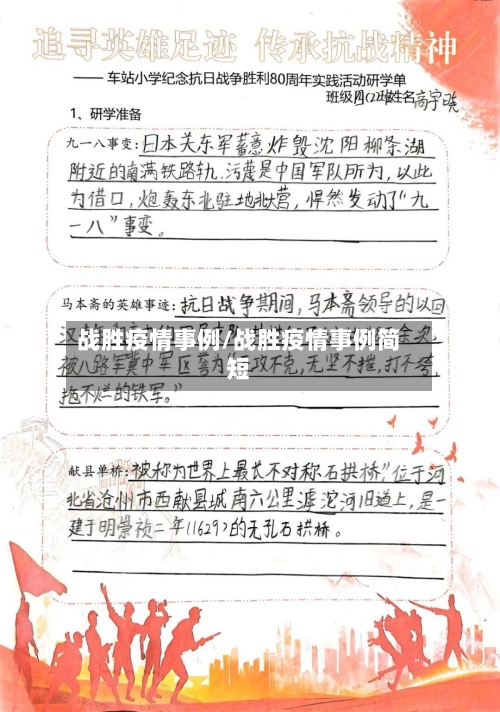 追寻英雄足迹 传承抗战精神
—— 车站小学纪念抗日战争胜利80周年实践活动研学单
班级四(22)班姓名高宇晓
1、研学准备
九一八事变:日本关东军蓄意炸毁沈阳柳条湖
附近的南满铁路轨,污蔑是中国军队所为,以此
为借口,炮轰东北驻地北大营,悍然发动了“九
一八”事变。
马本斋的英雄事迹:抗日战争期间,马本斋领导的以回
战胜疫情事例/战胜疫情事例简
短
被八路军冀中军区誉为“攻不克,无坚不摧,打不垮,
拖不烂的铁军。”
献县单桥:被称为世界上最长不对称石拱桥”位于河
北省沧州市西献县城南六公里滹沱河旧道上,是一
建于明崇祯二年(1629)的无孔石拱桥。